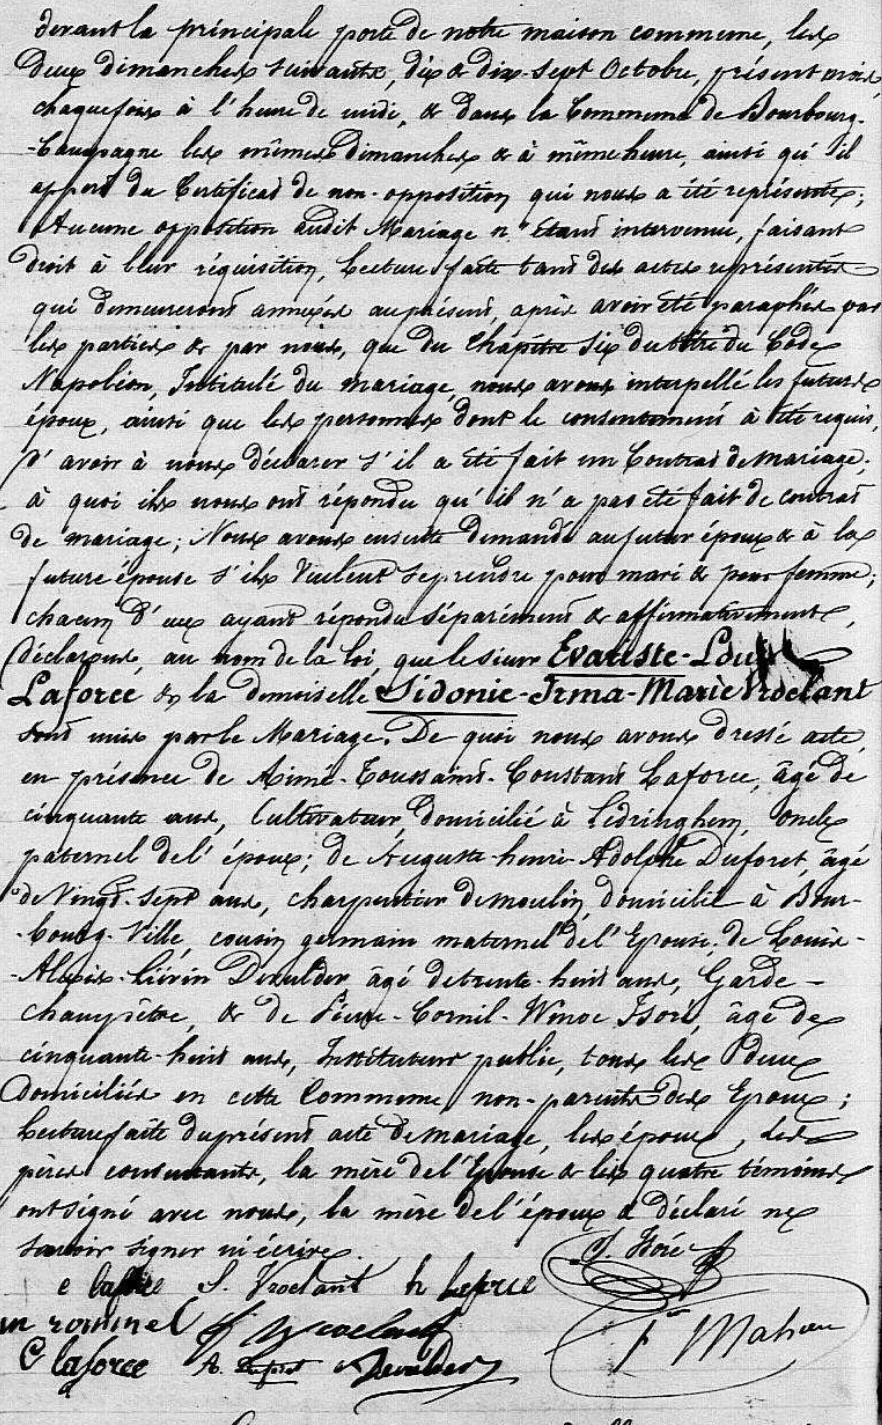 devant la principale porte de notre maison commune, les
deux dimanches suivants, dix & dix-sept Octobre, présent mois,
chaque fois à l'heure de midi, & dans la Commune de Bourbourg-
-Campagne les mêmes Dimanches & à même heure, ainsi qu'il
appert du Certificat de non-opposition qui nous a été représenté;
Aucune opposition audit Mariage n'étant intervenue, faisant
droit à leur réquisition, Lecture faite tant des actes représentés
qui demeureront annexés au présent, après avoir été paraphés par
les parties & par nous, que du Chapitre six du titre du Code
Napoléon, Intitulé du mariage, nous avons interpellé les futurs
époux, ainsi que les personnes dont le consentement à été requis,
d'avoir à nous déclarer s'il a été fait un Contrat de mariage;
à quoi ils nous ont répondu qu'il n'a pas été fait de contrat
de mariage; Nous avons ensuite demandé au futur époux & à la
future épouse s'ils veulent se prendre pour mari & pour femme;
chacun d'eux ayant répondu séparément & affirmativement,
déclarons, au nom de la loi, que le sieur Evariste-Louis
Laforce & la demoiselle Sidonie-Irma-Marie Vroelant
sont unis par le Mariage. De quoi nous avons dressé acte
en présence de Aimé-Toussaint-Constant Laforce, âgé de
cinquante ans, Cultivateur, domicilié à Ledringhem, oncle
paternel de l'époux; de Auguste-henri-Adolphe Duforet, âgé
de Vingt-sept ans, charpentier de moulin, domicilié à Bour-
-bourg-Ville, cousin germain maternel de l'Epouse; de Louis-
-Alexis-Liévin Deculder, âgé de trente-huit ans, Garde-
champêtre, & de Pierre-Cornil-Winoc Isoré, âgé de
cinquante-huit ans, Instituteur public, tous les deux
domiciliés en cette Commune, non-parents des Epoux;
Lecture faite du présent acte de mariage, les époux, les
pères consentants, la mère de l'Epouse & les quatre témoins
ont signé avec nous; la mère de l'époux a déclaré ne
savoir signer ni écrire.
P. Isoré
e laforce S. Vroelant h Laforce
rommel Vroelant
C laforce A. Duforet Deculder
Mahieu